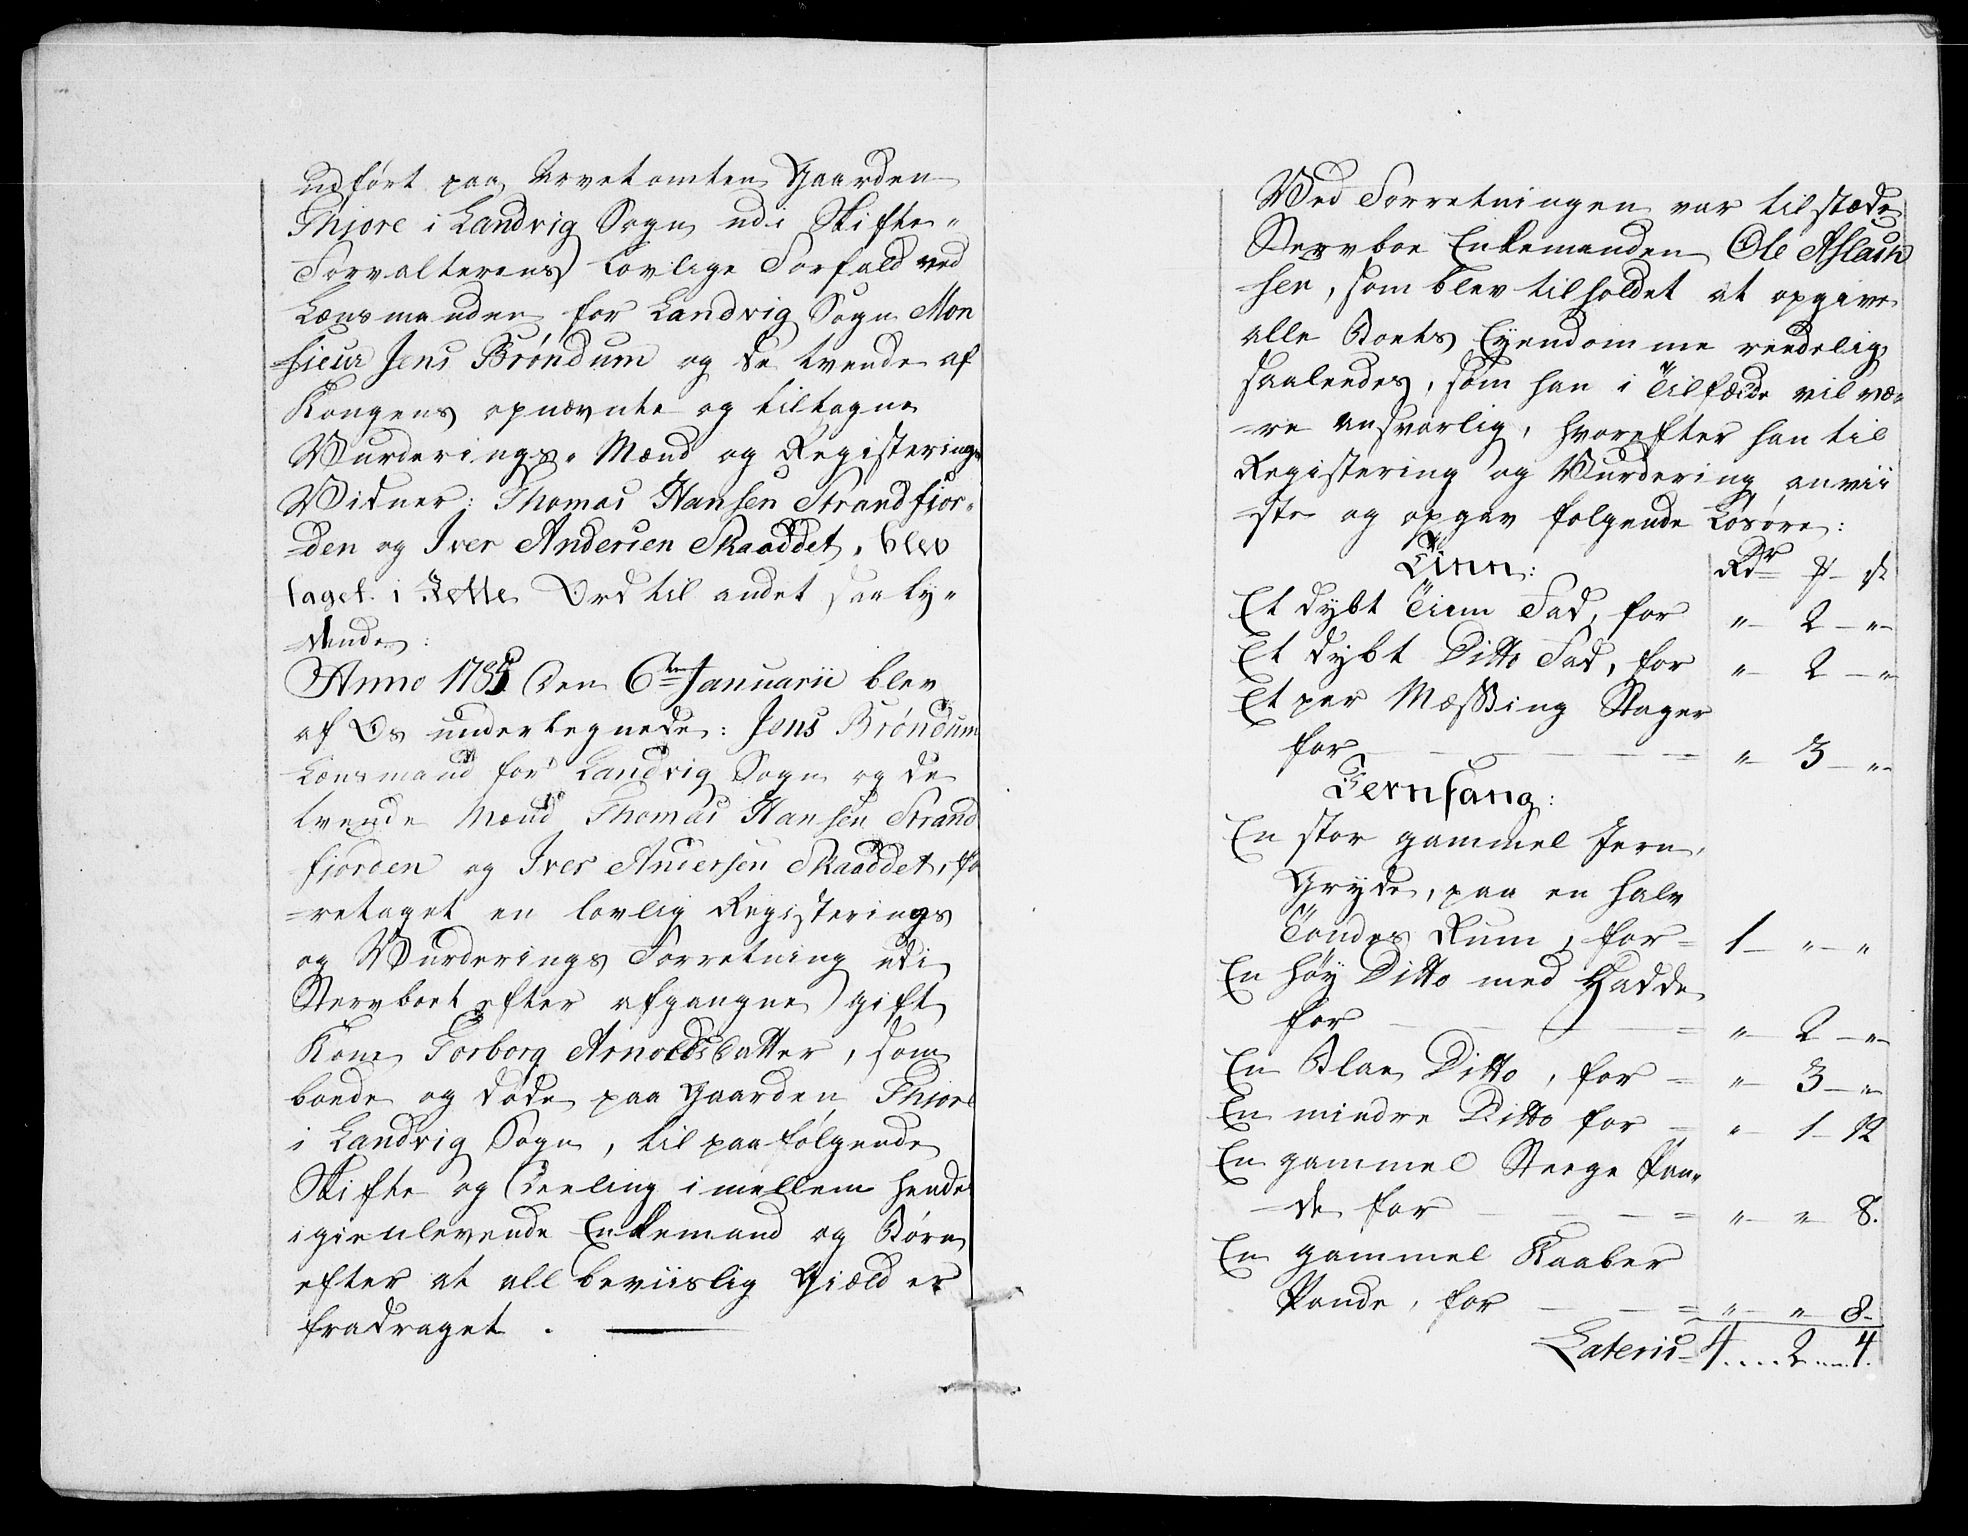 udført paa Arvetomten Gaarden
Thiore i Landvig Sogn udi Skifte-
Forvalterens lovlige Forfald ved
Lænsmanden for Landvig Sogn Mon
sieur Jens Brøndum og de tvende af
Kongens opnævnte og tiltagne
Vurderings-Mænd og Registerings
Vidner: Thomas Hansen Strandfior-
den og Iver Andersen Skaaddet, blev
taget i Rette Ord til andet saa ly-
dende:
Anno 1785 Den 6te Januarii blev
af Os undertegnede: Jens Brøndum
Lænsmand for Landvig Sogn og de
tvende Mænd Thomas Hansen Strand
fiorden og Iver Andersen Skaaddet, fo
retaget en lovlig Registerings
og Vurderings Forretning udi
Stervboet efter afgangne gift
Kone Torborg Arnoldsdatter, som
boede og døde paa Gaarden Thiore
i Landvig Sogn, til paafølgende
Skifte og Deeling imellem hendes
igienlevende Enkemand og Børn
efter at all beviislig Giæld er
fradraget.
Ved Forretningen var tilstæde
Stervboe Enkemanden Ole Aslach
sen, som blev tilholdet at opgive
alle Boets Eyendomme reedelig
saaleedes, som han i Tilfælde vil væ-
re ansvarlig, hvorefter han til
Registering og Vurdering anvii
ste og opgav følgende Løsøre:
Tinn: Rdr ₰ s
Et dybt Tinn Fad, for " 2 "
Et dybt Ditto Fad, for " 2 "
Et par Mæssing Stager
for " 3 "
Jernfang:
En stor gammel Jern
Gryde, paa en halv
Tøndes Rum, for 1 " "
En høy Ditto med Hadde
for " 2 "
En Ditto, for " 3 "
En mindre Ditto for " 1 12
En gammel Steege Pan-
de for " " 8.
En gammel Kaaber
Pande, for " " 8
Lateris 4 2 4.